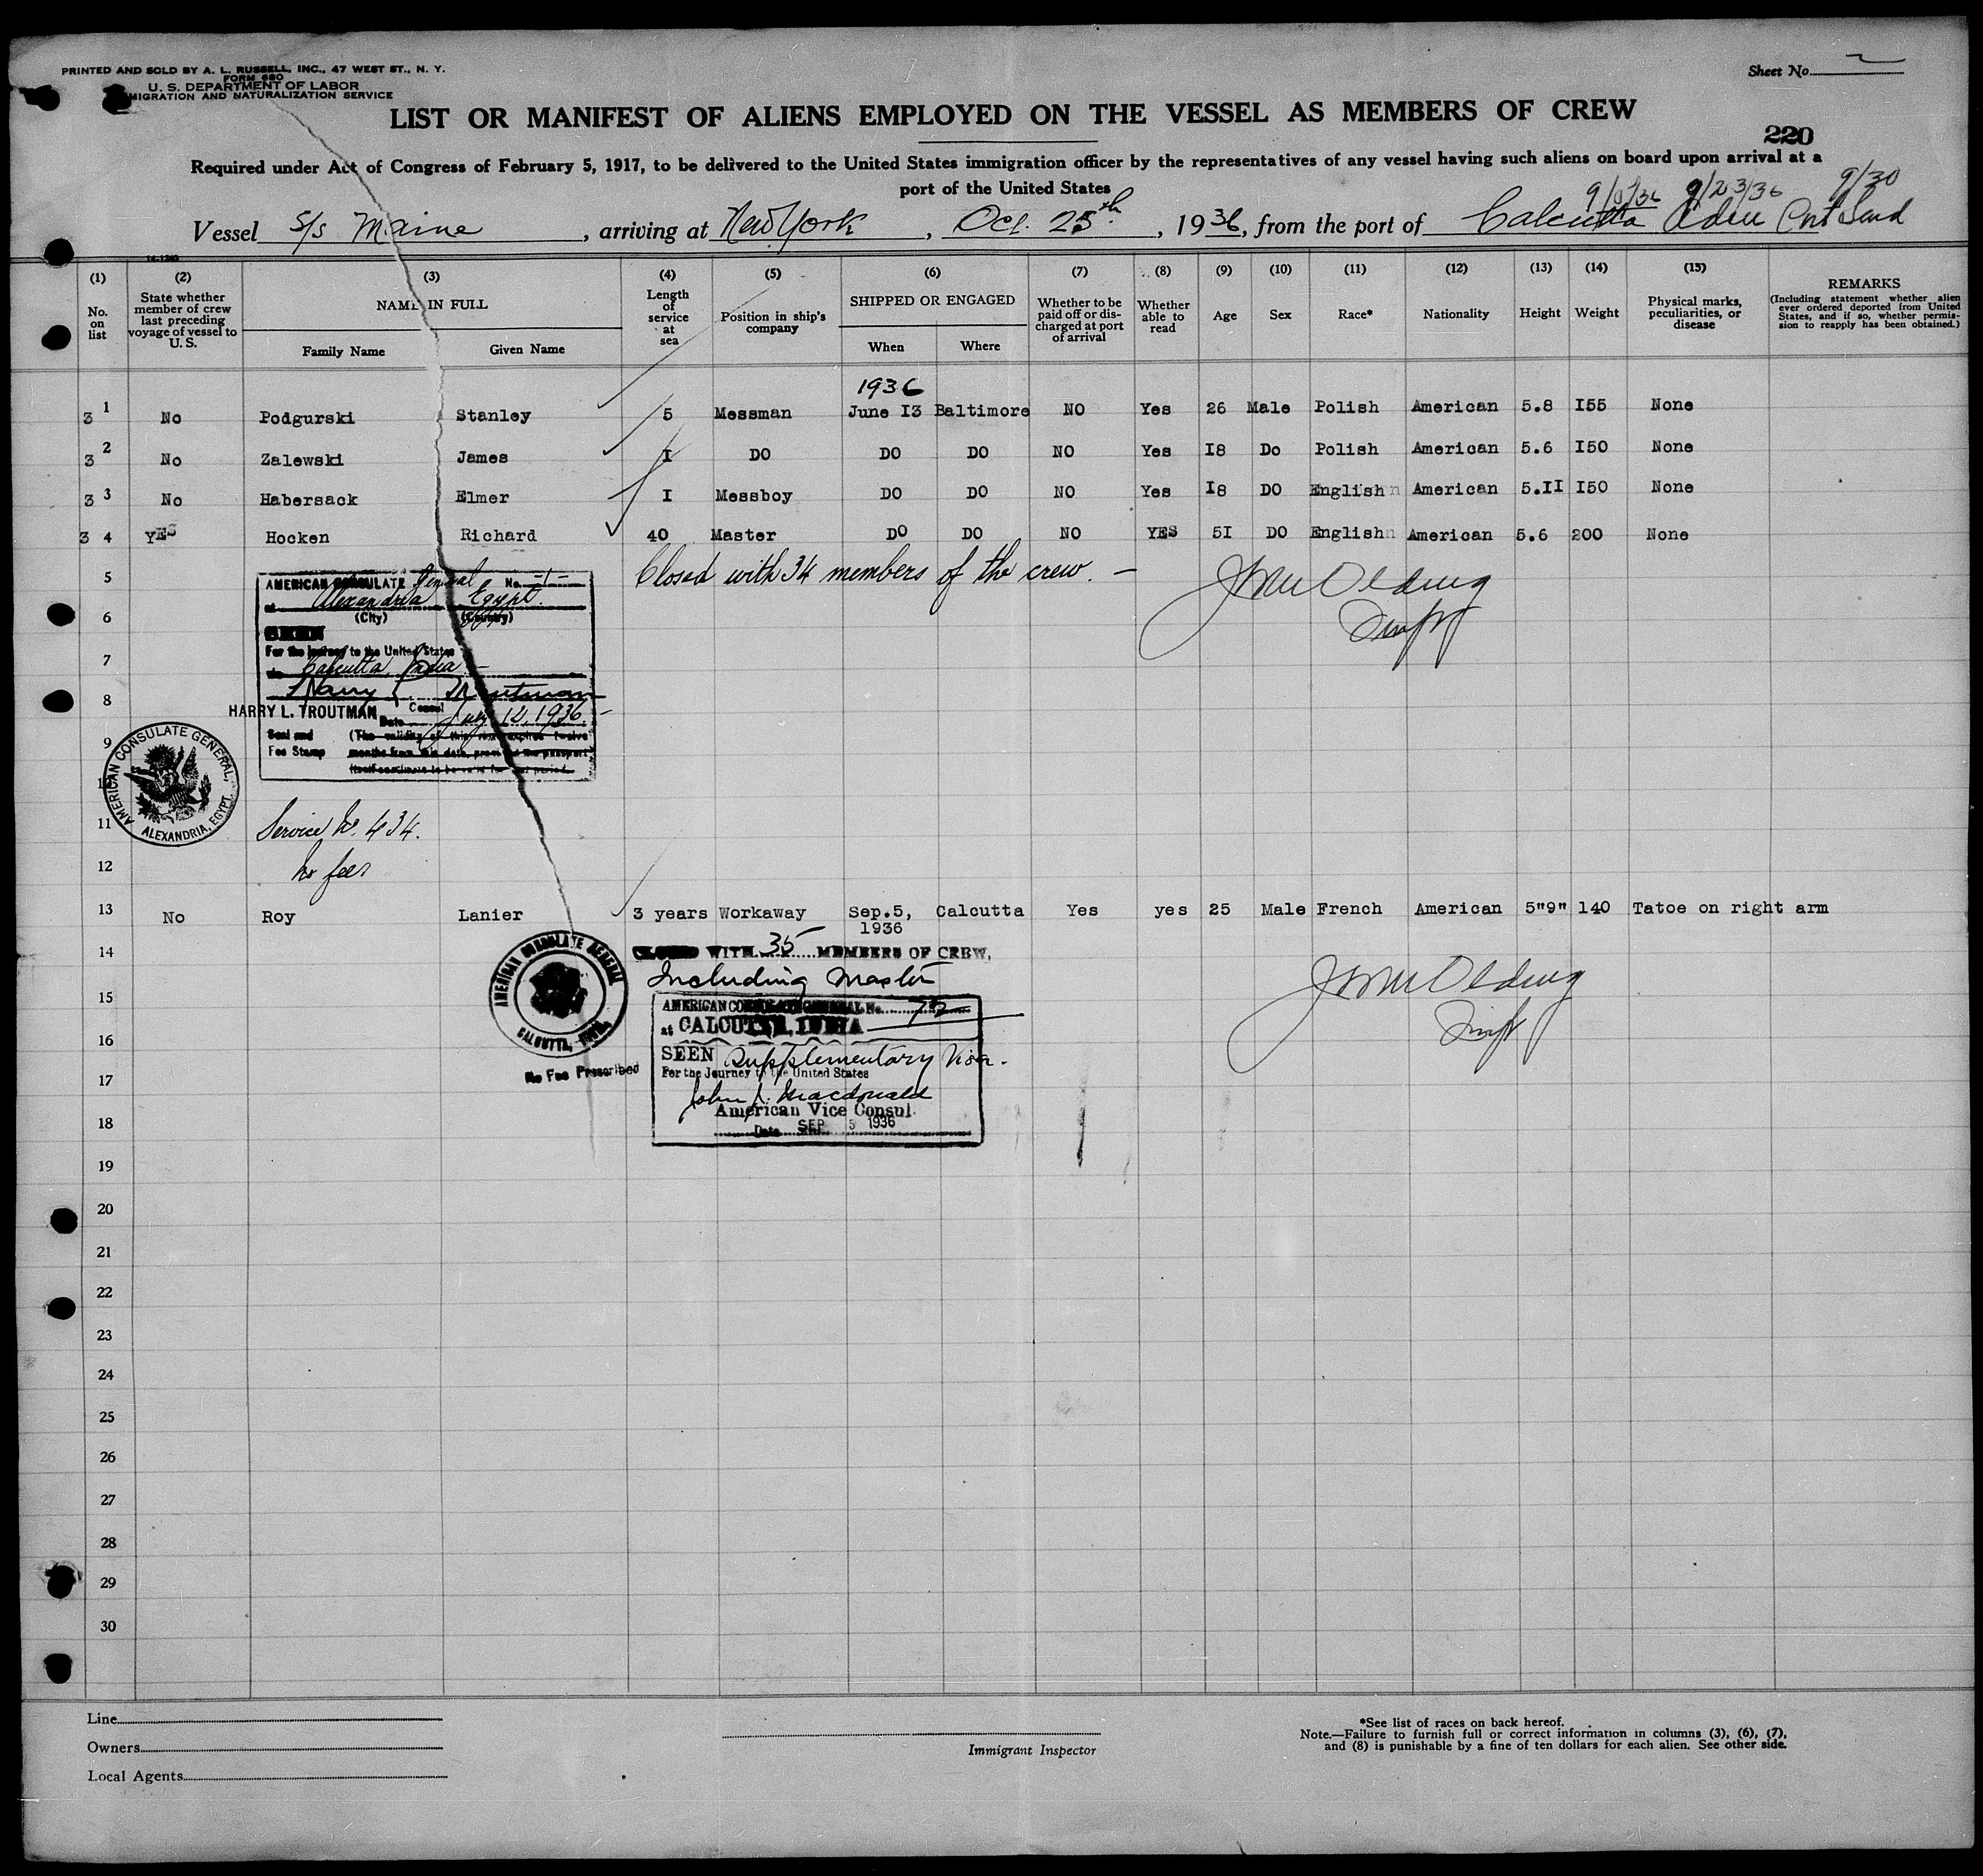 PRINTED AND SOLD BY A. L. RUSSELL, INC., 47 WEST ST., N. Y.
FORM 680
U. S. DEPARTMENT OF LABOR
MIGRATION AND NATURALIZATION SERVICE
Sheet No. 2
LIST OR MANIFEST OF ALIENS EMPLOYED ON THE VESSEL AS MEMBERS OF CREW
220
Required under Act of Congress of February 5, 1917, to be delivered to the United States immigration officer by the representatives of any vessel having such aliens on board upon arrival at a
port of the United States
9/23/36 9/30
Vessel S/s Maine, arriving at New York, Oct. 25th, 1936, from the port of Calcutta Aden Port Said
(1) (2) (3) (4) (5) (6) (7) (8) (9) (10) (11) (12) (13) (14) (15)
No. on list
State whether member of crew last preceding voyage of vessel to U. S.
NAME IN FULL
Family Name Given Name
Length of service at sea
Position in ship's company
SHIPPED OR ENGAGED
When Where
Whether to be paid off or discharged at port of arrival
Whether able to read
Age
Sex
Race*
Nationality
Height
Weight
Physical marks, peculiarities, or disease
REMARKS
(Including statement whether alien ever ordered deported from United States, and if so, whether permission to reapply has been obtained.)
1936
3 1 No Podgurski Stanley 5 Messman June I3 Baltimore NO Yes 26 Male Polish American 5.8 I55 None
3 2 No Zalewski James I DO DO DO NO Yes I8 Do Polish American 5.6 I50 None
3 3 No Habersack Elmer I Messboy DO DO NO Yes I8 DO English American 5.II I50 None
3 4 YES Hocken Richard 40 Master DO DO NO YES 5I DO English American 5.6 200 None
5 Closed with 34 members of the crew. —
AMERICAN CONSULATE General No. -1-
at Alexandria Egypt.
(City) (Country)
6
For the journey to the United States
7
via Calcutta, India —
Harry L. Troutman
8
HARRY L. TROUTMAN Consul
Date July 12, 1936.
9
Seal and Fee Stamp (The validity of this visa expires twelve months from this date, provided the passport itself continues to be valid for that period.
AMERICAN CONSULATE GENERAL, ALEXANDRIA, EGYPT.
10
11
Service No. 434.
12
No fee
13 No Roy Lanier 3 years Workaway Sep.5, 1936 Calcutta Yes yes 25 Male French American 5"9" 140 Tatoe on right arm
14
CLOSED WITH 35 MEMBERS OF CREW,
Including Master
AMERICAN CONSULATE GENERAL CALCUTTA, INDIA.
15
AMERICAN CONSULATE GENERAL No.
at CALCUTTA, INDIA
16
SEEN Supplementary Visa.
For the Journey to the United States
No Fee Prescribed
17
John J. Macdonald
American Vice Consul.
18
Date SEP 5 1936
19
20
21
22
23
24
25
26
27
28
29
30
Line
Owners
Local Agents
Immigrant Inspector
*See list of races on back hereof.
Note.—Failure to furnish full or correct information in columns (3), (6), (7),
and (8) is punishable by a fine of ten dollars for each alien. See other side.